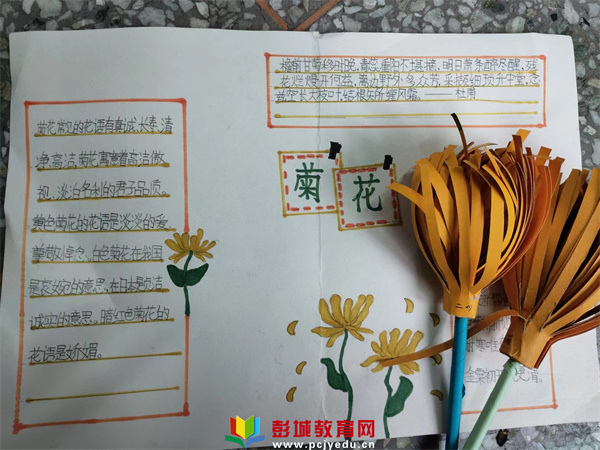 菊花常见的花语有真诚、长寿、清
净、高洁,菊花寓意着高洁傲
视,淡泊名利的君子品质。
黄色菊花的花语是淡淡的爱
白色菊花在我国
是哀婉的意思,在日本是贞洁
诚实的意思。暗红色菊花的
花语是娇媚。
檐前甘菊移时晚,青蕊重阳不堪摘,明日萧条醉尽醒,残
花烂熳开何益,篱边野外多众芳,采撷细琐升中堂,念
兹空长大枝叶,结根失所缠风霜。——杜甫
菊
花
彭城教育网
www.pcjyedu.cn